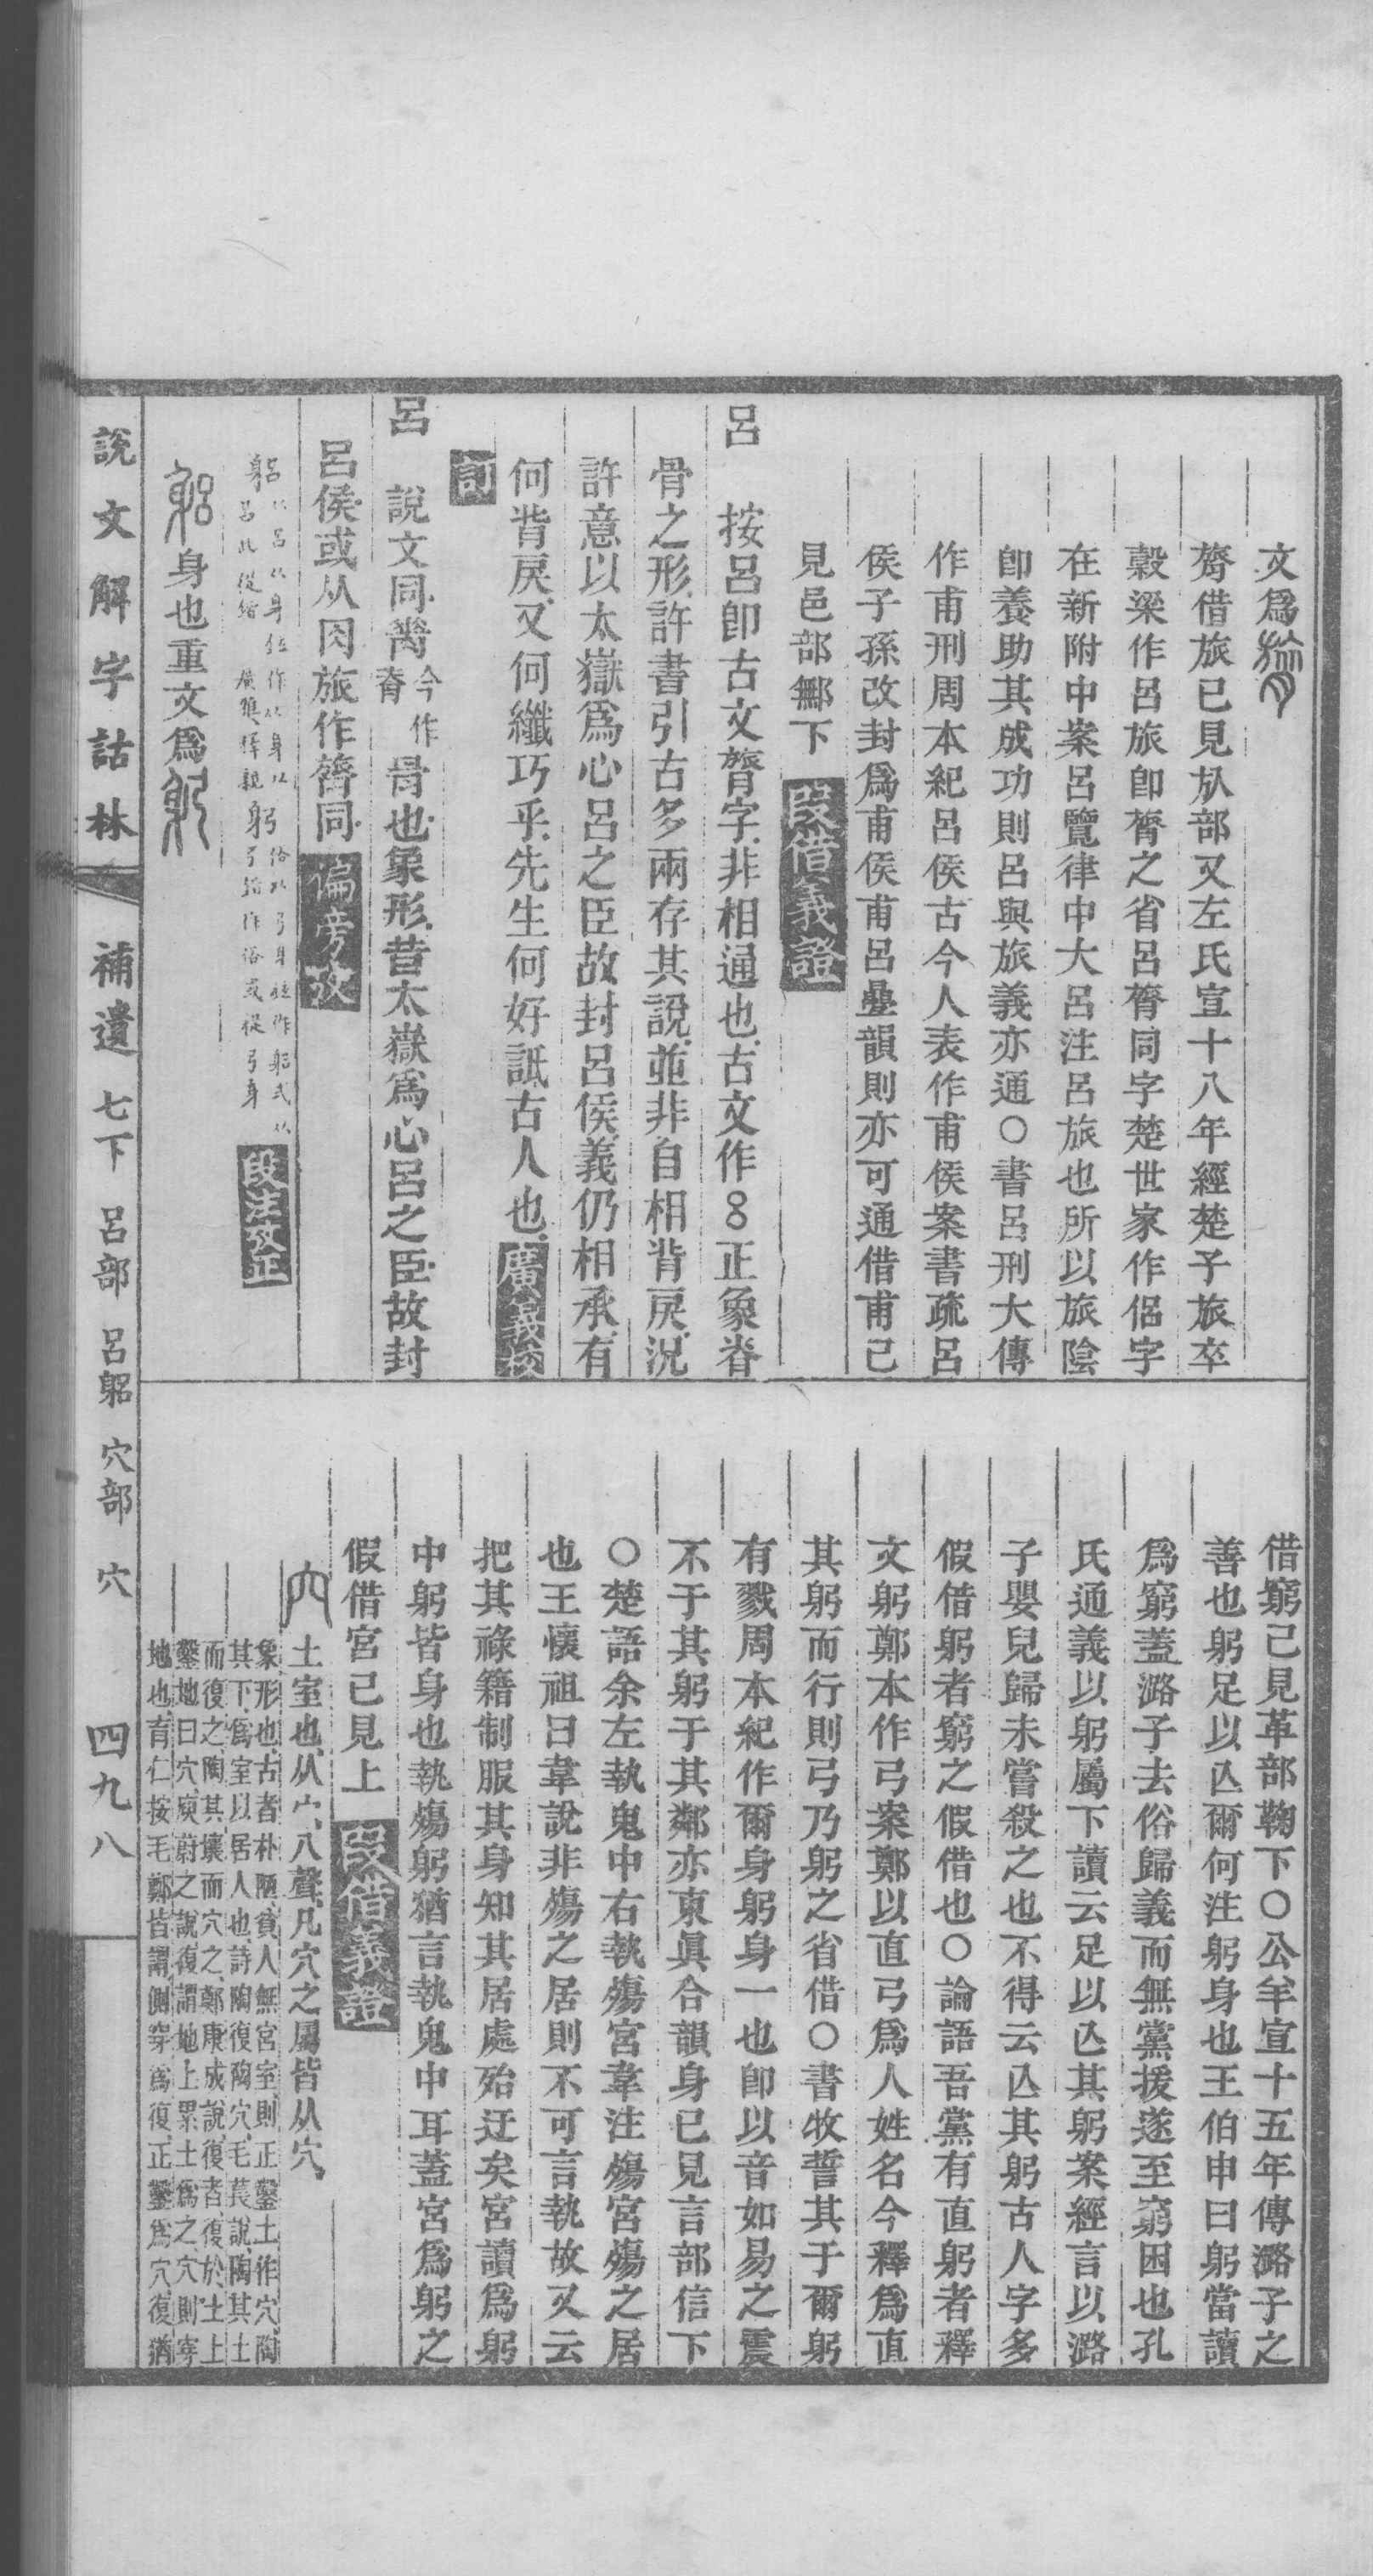 文爲膂
膂借旅已見㫃部又左氏宣十八年經楚子旅卒
穀梁作呂旅卽膂之省呂膂同字楚世家作侶字
在新附中案呂覽律中大呂注呂旅也所以旅陰
卽養助其成功則呂與旅義亦通○書呂刑大傳
作甫刑周本紀呂侯古今人表作甫侯案書疏呂
侯子孫改封爲甫侯甫呂疊韻則亦可通借甫已
見邑部鄦下 段借義證
呂 按呂卽古文膂字非相通也古文作𠄔正象脊
骨之形許書引古多兩存其說並非自相背戾況
許意以太嶽爲心呂之臣故封呂侯義仍相承有
何背戾又何纖巧乎先生何好詆古人也 廣義校
訂
呂 說文同𦟝今作脊骨也象形昔太嶽爲心呂之臣故封
呂侯或从肉旅作膂同 偏旁攷
段注攷正
躳身也重文爲躬
借窮已見革部鞠下○公羊宣十五年傳潞子之
善也躬足以亾爾何注躬身也王伯申曰躬當讀
爲窮蓋潞子去俗歸義而無黨援遂至窮困也孔
氏通義以躬屬下讀云足以亾其躬案經言以潞
子嬰兒歸未嘗殺之也不得云亾其躬古人字多
假借躬者窮之假借也○論語吾黨有直躬者釋
文躬鄭本作弓案鄭以直弓爲人姓名今釋爲直
其躬而行則弓乃躬之省借○書牧誓其于爾躬
有戮周本紀作爾身躬身一也卽以音如易之震
不于其躬于其鄰亦東眞合韻身已見言部信下
○楚語余左執鬼中右執殤宮韋注殤宮殤之居
也王懷祖曰韋說非殤之居則不可言執故又云
把其祿籍制服其身知其居處殆迂矣宮讀爲躬
中躬皆身也執殤躬猶言執鬼中耳蓋宮爲躬之
假借宮已見上 段借義證
穴 土室也从宀八聲凡穴之屬皆从穴
象形也古者朴陋貧人無宮室則正鑿土作穴陶
其下爲室以居人也詩陶復陶穴毛萇說陶其土
而復之陶其壤而穴之鄭康成說復者復於土上
鑿地曰穴庾蔚之說復謂地上累土爲之穴則穿
地也育仁按毛鄭皆謂側穿爲復正鑿爲穴復猶
說文解字詁林 補遺 七下 呂部 呂躳 穴部 穴 四九八